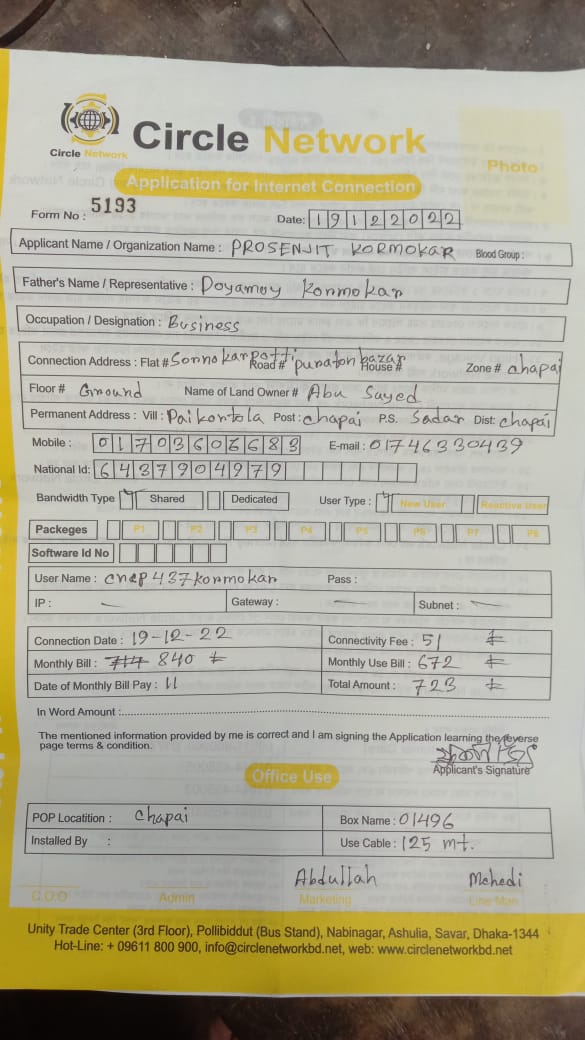 Circle Network
Circle Network
Photo
Application for Internet Connection
Form No : 5193
Date: 19122022
Applicant Name / Organization Name : PROSENJIT KORMOKAR Blood Group :
Father's Name / Representative : Doyamoy Konmokar
Occupation / Designation : Business
Connection Address : Flat # Sonnokarpotti Road # puraton bazar House # Zone # chapai
Floor # Ground Name of Land Owner # Abu Sayed
Permanent Address : Vill : Paikortola Post : chapai P.S. Sadar Dist: chapai
Mobile : 01703606683 E-mail : 01746330439
National Id: 6437904979
Bandwidth Type Shared Dedicated User Type : New User Reactive User
Packeges P1 P2 P3 P4 P5 P6 P7 P8
Software Id No
User Name : cnap437konmokar Pass :
IP : — Gateway : — Subnet : —
Connection Date : 19-12-22 Connectivity Fee : 51
Monthly Bill : 840 Monthly Use Bill : 672
Date of Monthly Bill Pay : 11 Total Amount : 723
In Word Amount :
The mentioned information provided by me is correct and I am signing the Application learning the reverse
page terms & condition.
Applicant's Signature
Office Use
POP Locatition : Chapai Box Name : 01496
Installed By : Use Cable : 125 mt.
Abdullah Mehedi
C.O.O Admin Marketing Line Man
Unity Trade Center (3rd Floor), Pollibiddut (Bus Stand), Nabinagar, Ashulia, Savar, Dhaka-1344
Hot-Line: + 09611 800 900, info@circlenetworkbd.net, web: www.circlenetworkbd.net